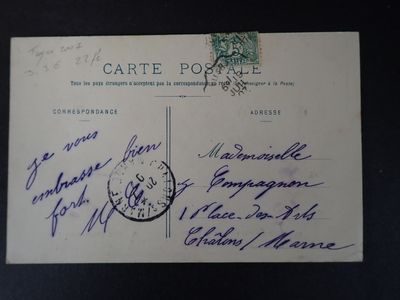 CARTE POSTALE
Tous les pays étrangers n'acceptent pas la correspondance au recto (Se renseigner à la Poste)
CORRESPONDANCE
ADRESSE
je vous
embrasse bien
fort.
M
Mademoiselle
Y Compagnon
1 Place des Arts
Châlons / Marne